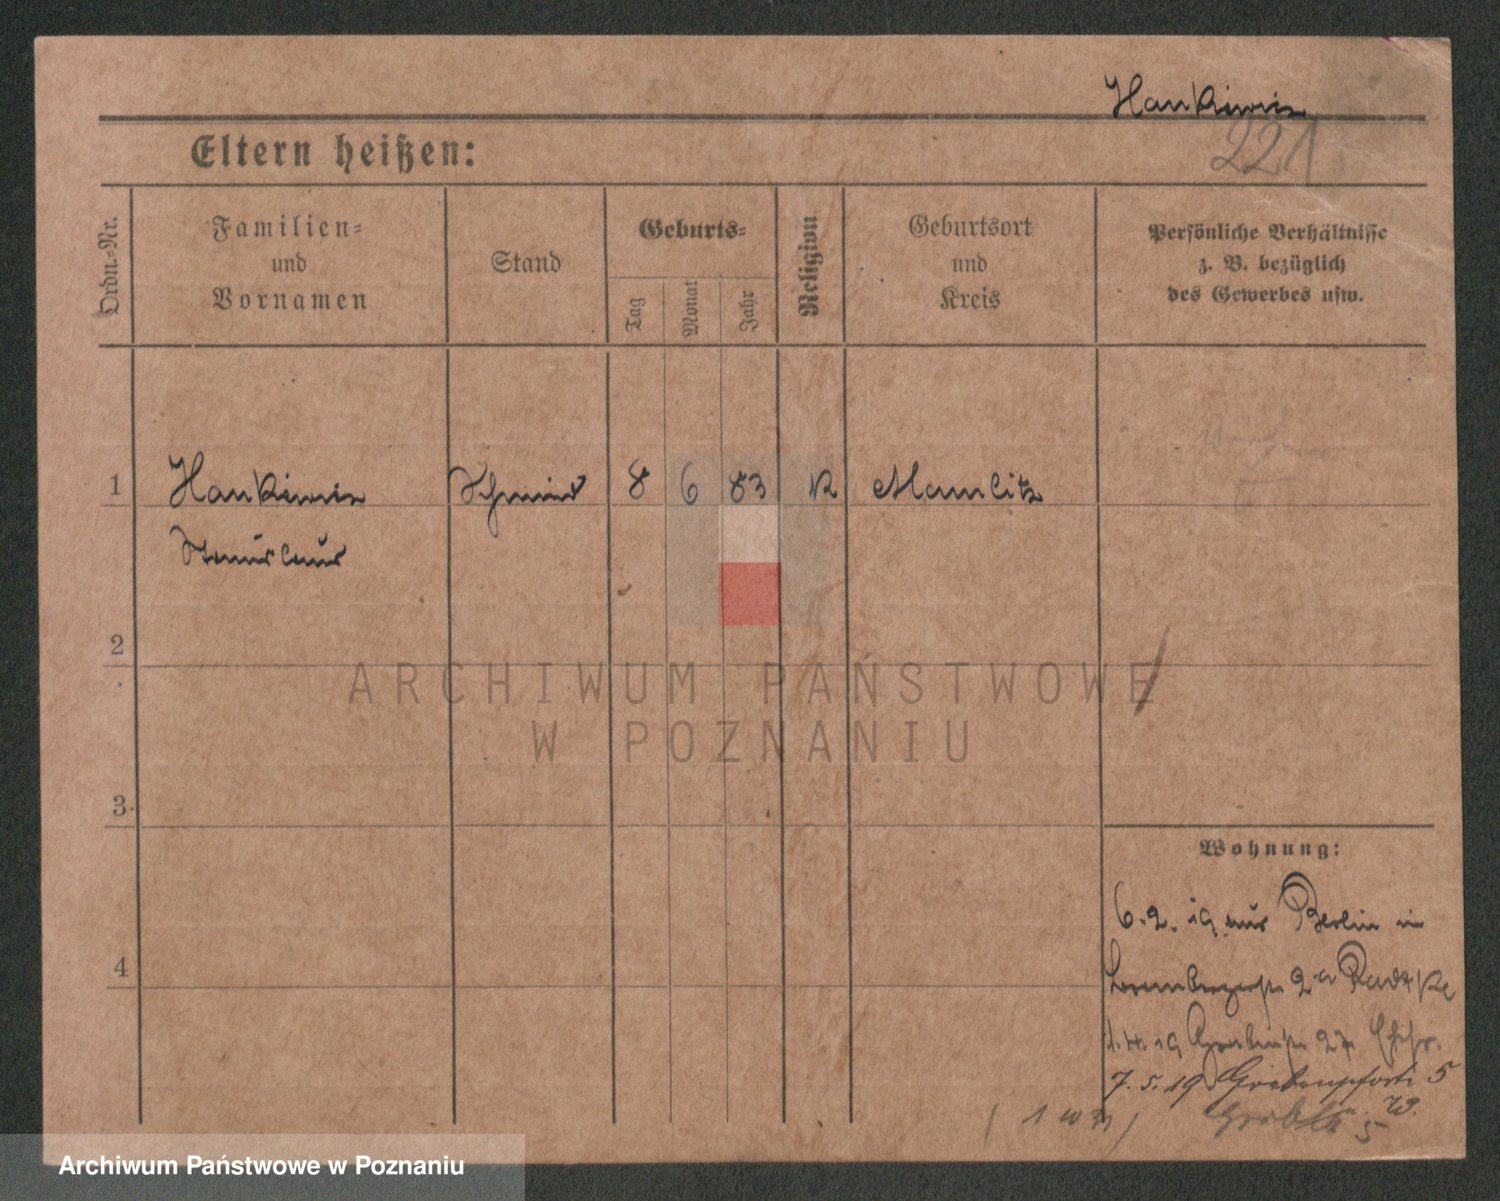 Hankiewicz
221
Eltern heißen:
Ordn.-Nr.
Familien-
und
Vornamen
Stand
Geburts-
Tag
Monat
Jahr
Religion
Geburtsort
und
Kreis
Persönliche Verhältnisse
z. B. bezüglich
des Gewerbes usw.
1 Hankiewicz Schmied 8 6 83 K Mamlitz
Stanislaus
2
ARCHIWUM PAŃSTWOWE
W POZNANIU
3
Wohnung:
6. 2. 19 aus Berlin in
2a Radtke
4
27
7. 5. 19 Grabenpforte 5
W.
5
Archiwum Państwowe w Poznaniu